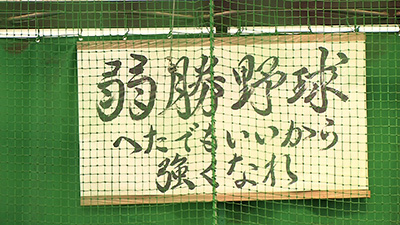 弱勝野球
へたでもいいから
強くなれ